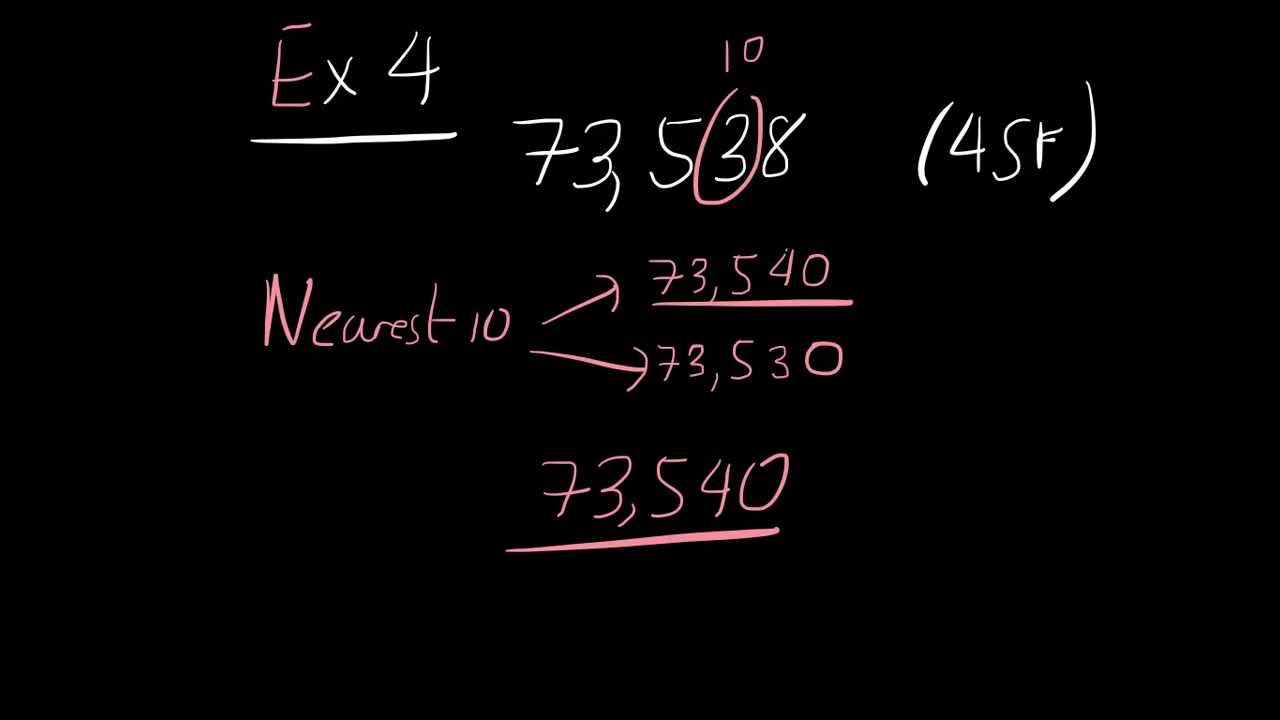 Ex 4
10
73,538 (4SF)
73,540
Nearest 10
73,530
73,540